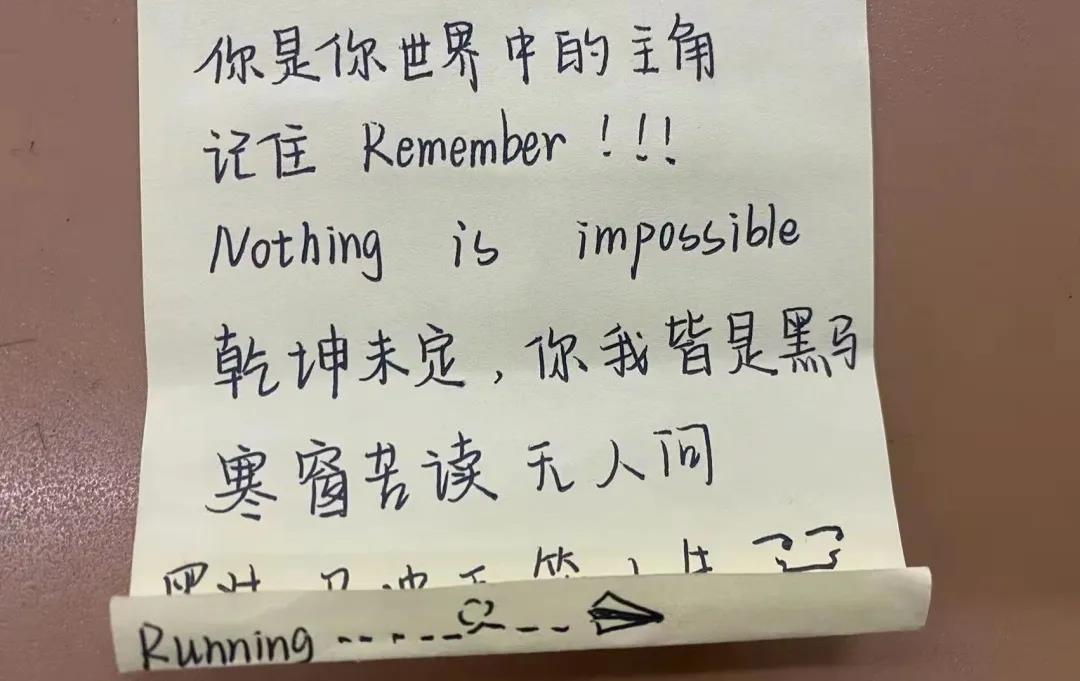 你是你世界中的主角
记住 Remember !!!
Nothing is impossible
乾坤未定，你我皆是黑马
寒窗苦读无人问
Running